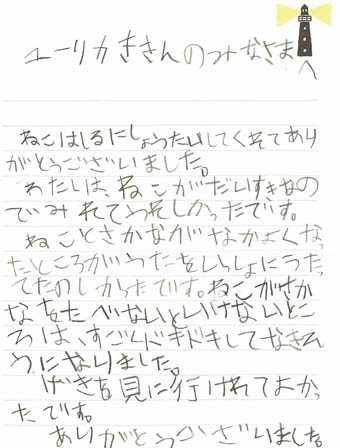 ユーリカききんのみなさまへ
ねこはしるにしょうたいしてくれてあり
がとうございました。
わたしは、ねこがだいすきなの
でみれてうれしかったです。
ねことさかながなかよくなっ
たところがうたをいっしょにうたっ
てたのしかったです。ねこがさか
なをたべないといけないとこ
ろは、すごくドキドキしてなきそ
うになりました。
げきを見に行けれてよかっ
たです。
ありがとうございました。